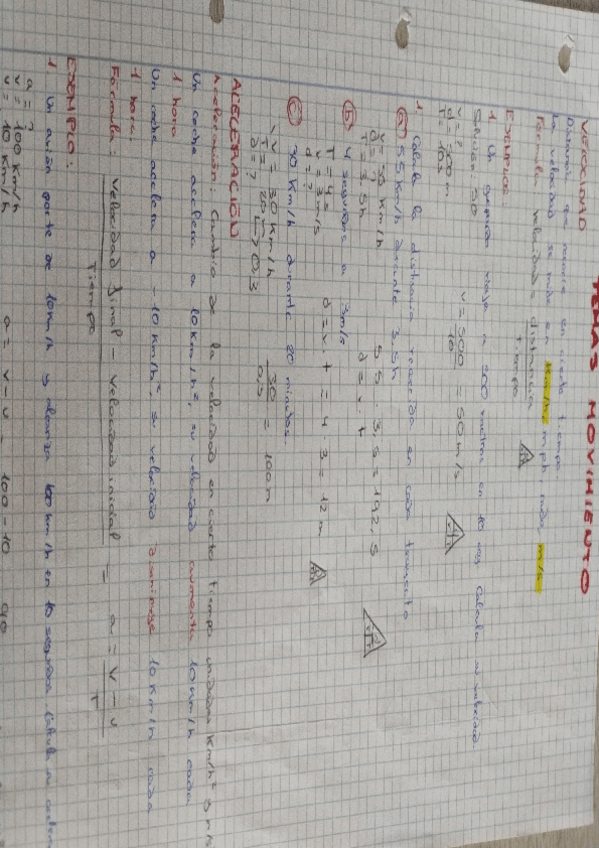 TEMAS MOVIMIENTO
VELOCIDAD
Distancia que recorre en cierto tiempo
La velocidad se mide en Km/h, mph, nudos m/s
Fórmula velocidad = distancia
Tiempo
EJEMPLOS
1. Un guepardo viaja a 500 metros en 10 seg Calcula su velocidad
V = ?
d = 500 m
T = 10 s
V = 500 = 50 m/s
10
1. Calcula la distancia recorrida en cada trayecto
a) 55 km/h durante 3.5h
d = ?
T = 3.5h
d = v . t
55 . 3,5 = 192,5
b) 4 segundos a 3m/s
T = 4s
v = 3 m/s
d = ?
d = v . t = 4 . 3 = 12 m
c) 30 Km/h durante 20 minutos
V = 30 Km/h
d = ?
30
ACELERACIÓN
Aceleración: Cambio de la velocidad en cierto tiempo unidades Km/h² y m/s
Un coche acelera a 10 Km/h², su velocidad aumenta 10 Km/h cada
1 hora
Un coche acelera a -10 Km/h², su velocidad disminuye 10 Km/h cada
1 hora.
Fórmula: Velocidad final - velocidad inicial = a = v - v
Tiempo T
EJEMPLO:
1. Un avión parte de 10 Km/h y alcanza 100 km/h en 10 segundos Calcula su
a = ?
V = 100 Km/h
V = 10 Km/h
a = v - v 100 - 10 90